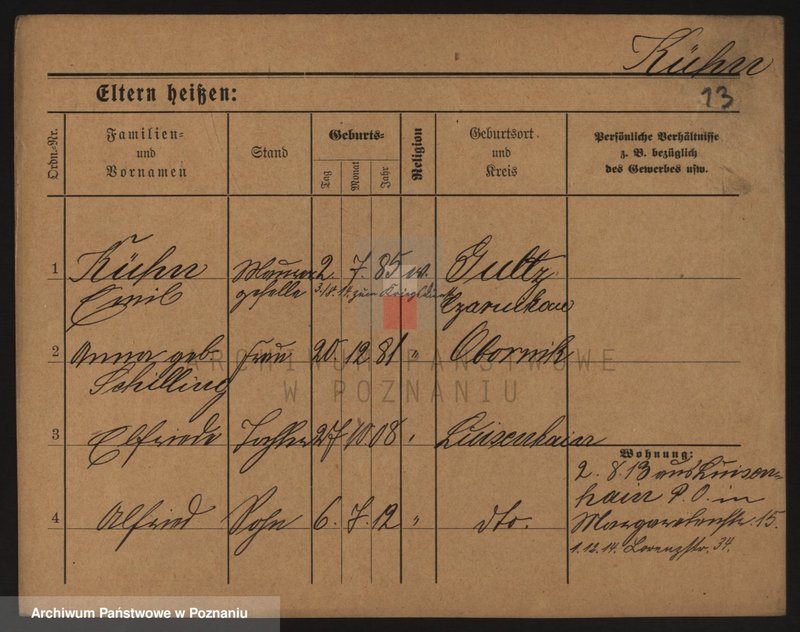 Kühn
13
Eltern heißen:
Ordn.-Nr.
Familien-
und
Vornamen
Stand
Geburts-
Tag
Monat
Jahr
Religion
Geburtsort
und
Kreis
Persönliche Verhältnisse
z. B. bezüglich
des Gewerbes usw.
1
Kühn
Emil
Maurer
geselle
2. 7. 85
ev.
zum Kriegsdienst
Gultz
Czarnikau
2
Anna geb.
Schilling
Frau
20. 12 81
"
Obornik
3
Elfriede
Tochter
27. 10. 08
"
Luisenhain
4
Alfried
Sohn
6. 7. 12
"
dto.
Wohnung:
2. 8. 13 aus Luisen-
hain P. O. in
Margaretenstr. 15.
1. 12. 14. Lorenzstr. 34.
ARCHIWUM PAŃSTWOWE
W POZNANIU
Archiwum Państwowe w Poznaniu